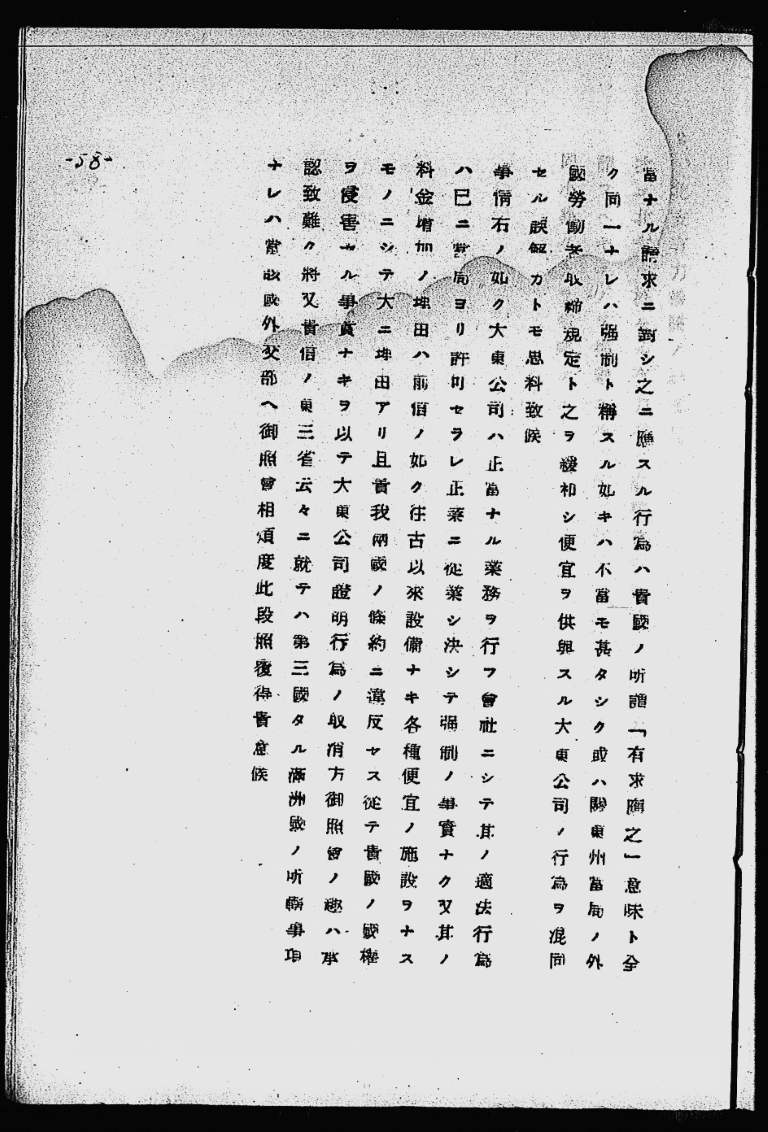 -58-
當ナル請求ニ對シ之ニ應スル行為ハ貴國ノ所謂「有求應之」意味ト全
ク同一ナレハ强制ト稱スル如キハ不當モ甚タシク或ハ關東州當局ノ外
國勞働者取締規定ト之ヲ緩和シ便宜ヲ供與スル大東公司ノ行為ヲ混同
セル誤解カトモ思料致候
事情右ノ如ク大東公司ハ正當ナル業務ヲ行フ會社ニシテ其ノ適法行為
ハ已ニ當局ヨリ許可セラレ正業ニ從業シ決シテ强制ノ事實ナク又其ノ
料金增加ノ理由ハ前信ノ如ク往古以來設備ナキ各種便宜ノ施設ヲナス
モノニシテ大ニ理由アリ且貴我兩國ノ條約ニ違反セス從テ貴國ノ國權
ヲ侵害セル事實ナキヲ以テ大東公司證明行為ノ取消方御照會ノ趣ハ承
認致難ク將又貴信ノ東三省云々ニ就テハ第三國タル滿洲國ノ所轄事項
ナレハ當該國外交部ヘ御照會相煩度此段照復得貴意候